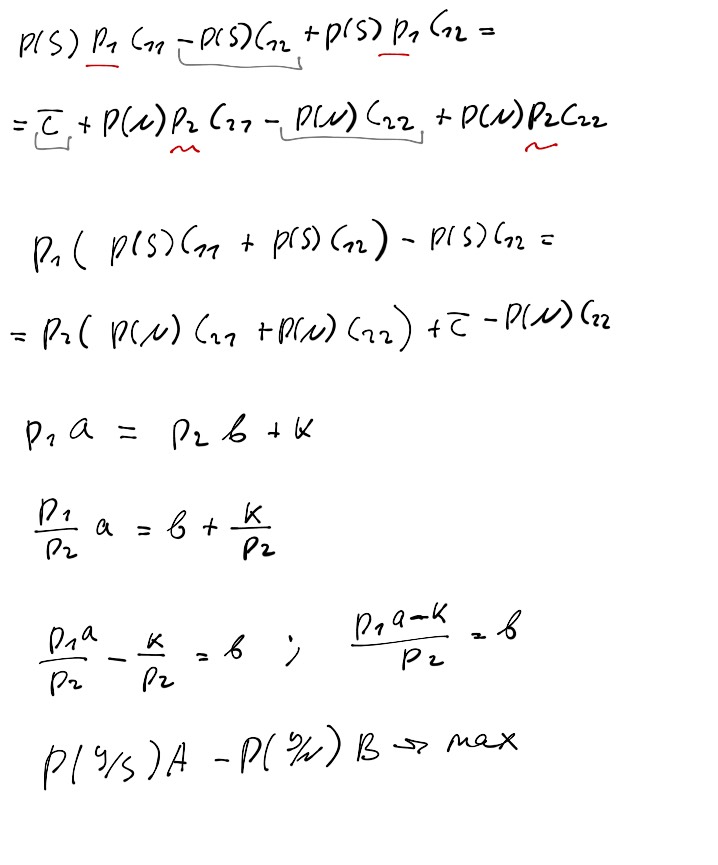 P(S) P₁ C₁₁ − P(S) C₁₂ + P(S) P₁ C₁₂ =
= C̅ + P(N) P₂ C₂₁ − P(N) C₂₂ + P(N) P₂ C₂₂
P₁ ( P(S) C₁₁ + P(S) C₁₂ ) − P(S) C₁₂ =
= P₂ ( P(N) C₂₁ + P(N) C₂₂ ) + C̅ − P(N) C₂₂
P₁ a = P₂ b + K
P₁/P₂ a = b + K/P₂
P₁a/P₂ − K/P₂ = b ; (P₁a − K)/P₂ = b
P(y/s) A − P(y/N) B → max